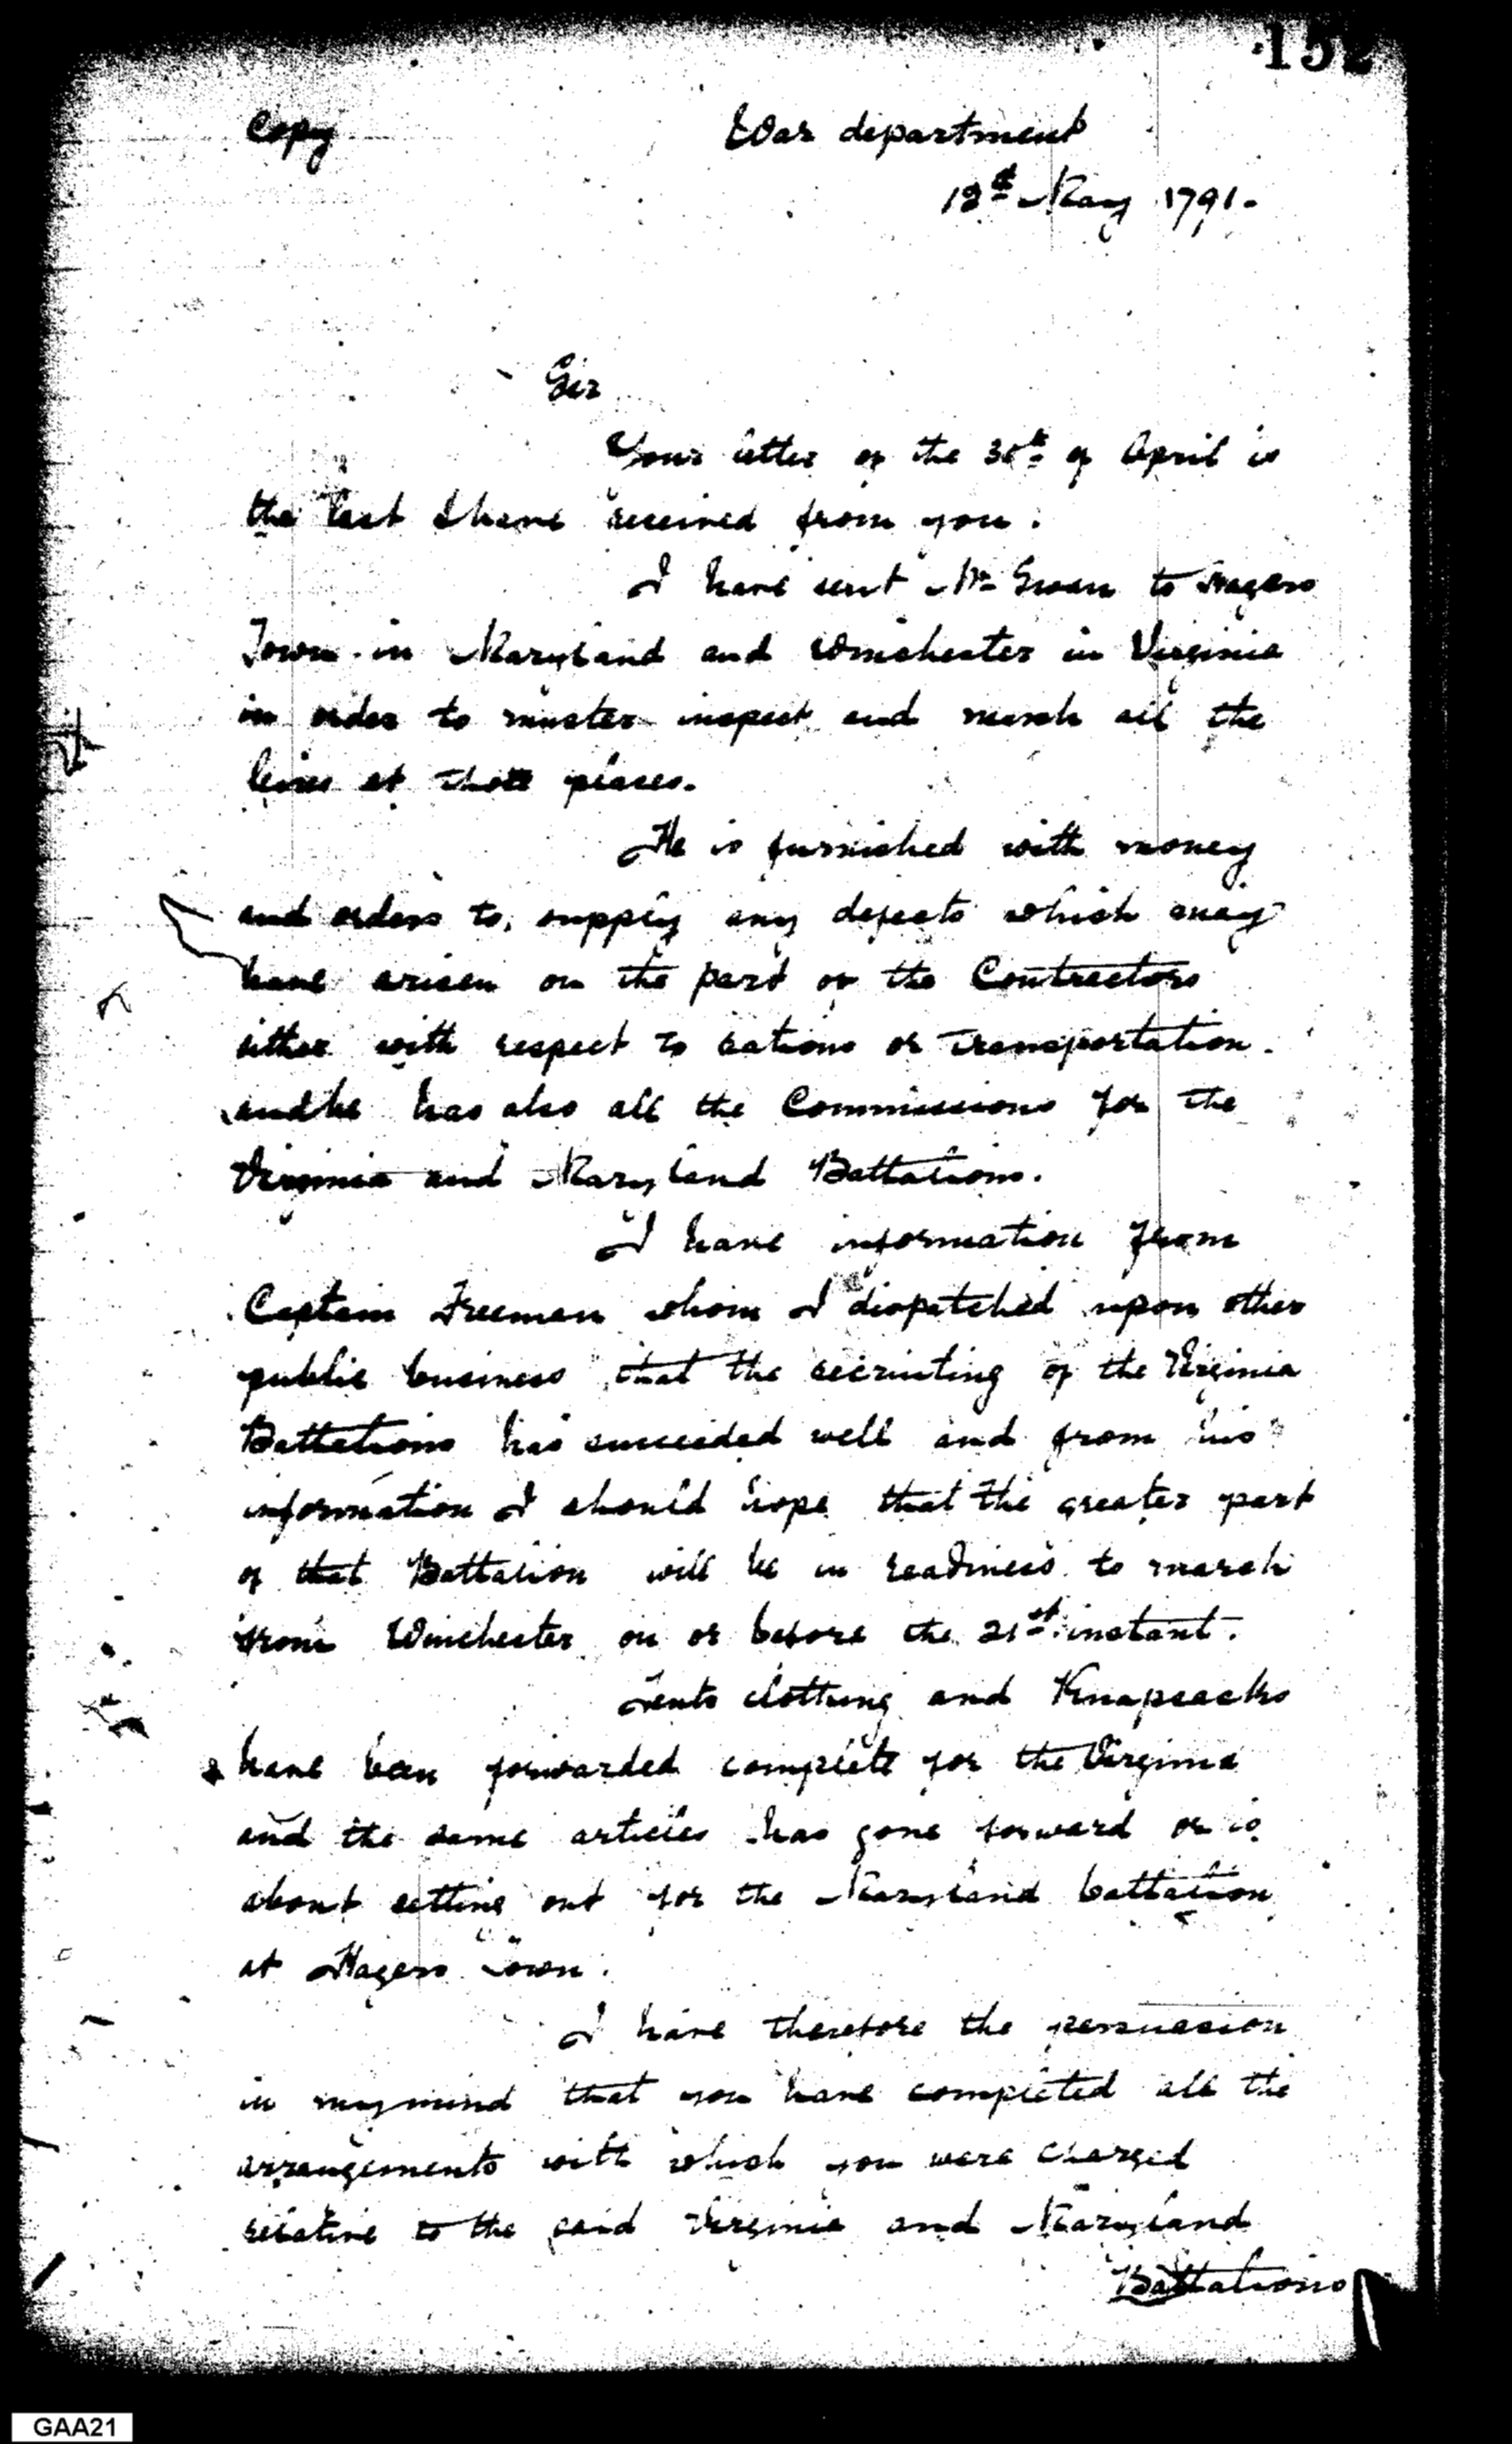 152
Copy
War department
12th May 1791.
Sir
Your letter of the 30th of April is
the last I have received from you.
I have sent Mr Swan to Hagers
Town in Maryland and Winchester in Virginia
in order to muster inspect and march all the
levies at those places.
He is furnished with money
and orders to supply any defects which may
have arisen on the part of the Contractors
either with respect to rations or transportation.
and he has also all the Commissions for the
Virginia and Maryland Battalions.
I have information from
Captain Freeman whom I dispatched upon other
public business that the recruiting of the Virginia
Battalions has succeeded well and from his
information I should hope that the greater part
of that Battalion will be in readiness to march
from Winchester on or before the 21st instant.
Tents clothing and Knapsacks
have been forwarded complete for the Virginia
and the same articles has gone forward or is
about setting out for the Maryland battalion
at Hagers Town.
I have therefore the persuasion
in my mind that you have completed all the
arrangements with which you were charged
relative to the said Virginia and Maryland
Battalions
GAA21